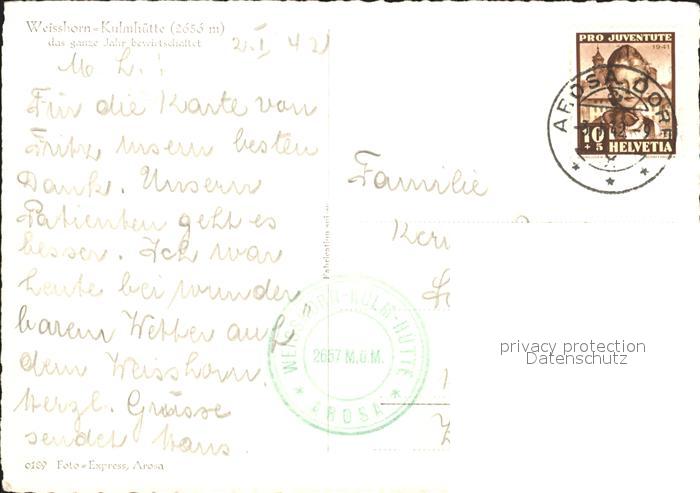 Weisshorn-Kulmhütte (2656 m)
das ganze Jahr bewirtschaftet
2.I.42
M. L.!
Für die Karte von
Fritz unsern besten
Dank. Unsern
Patienten geht es
besser. Ich war
heute bei wunder
barem Wetter auf
dem Weisshorn.
Herzl. Grüsse
sendet Hans.
0189 Foto-Express, Arosa
PRO JUVENTUTE
1941
AROSA DORF
10
+5
HELVETIA
Familie
WEISSHORN-KULM-HÜTTE
2657 M.Ü.M.
* AROSA *
privacy protection
Datenschutz